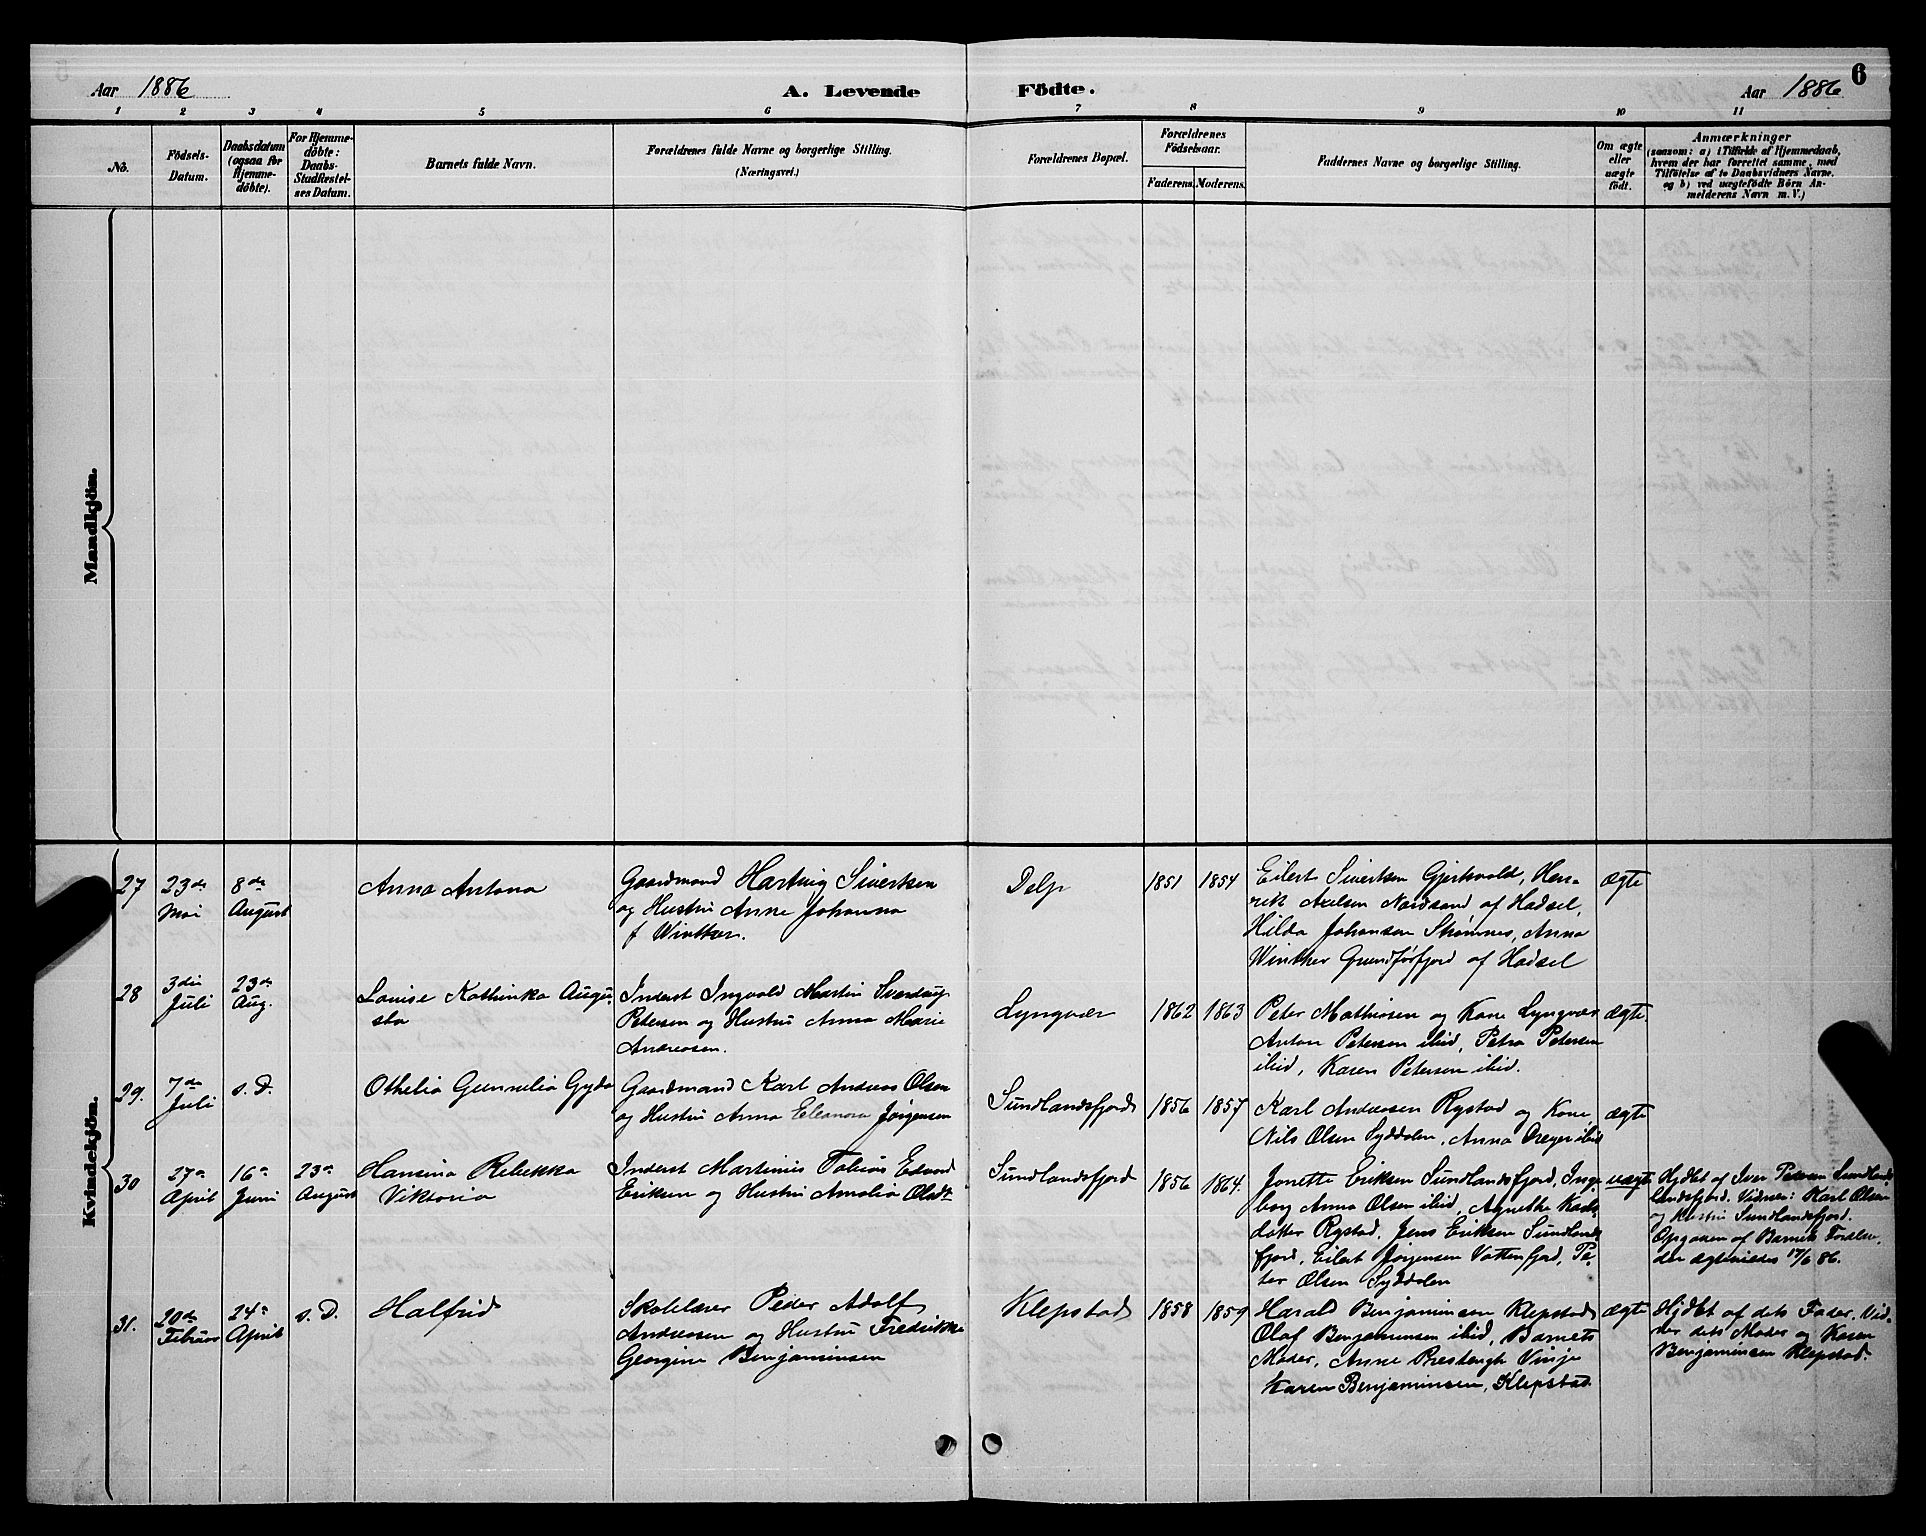 6
Aar 1886 A. Levende Födte. Aar 1886
1 2 3 4 5 6 7 8 9 10 11
No.
Födsels-
Datum.
Daabsdatum
(ogsaa for
Hjemme-
döbte).
For Hjemme-
döbte:
Daabs-
Stadfestel-
ses Datum.
Barnets fulde Navn.
Forældrenes fulde Navne og borgerlige Stilling.
(Næringsvei.)
Forældrenes Bopæl.
Forældrenes
Födselsaar.
Faderens. Moderens.
Faddernes Navne og borgerlige Stilling.
Om ægte
eller
uægte
födt.
Anmærkninger
(saasom: a) i Tilfælde af Hjemmedaab,
hvem der har forrettet samme, med
Tilföielse af to Daabsvidners Navne,
og b) ved uægtefödte Börn An-
melderens Navn m. V.)
Mandkjön.
Kvindekjön.
27
23de
Mai
8de
August
Anna Antona
Gaardmand Hartvig Sivertsen
og Hustru Anne Johanna
f Winther.
Delp
1851 1854
Eilert Sivertsen Gjerkvold, Hen-
rik Axelsen Nordsand af Hadsel,
Hilda Johansen Strømnes, Anna
Winther Grundförfjord af Hadsel
Ægte
28
3die
Juli
23de
Aug.
Louise Kathinka Augu-
sta
Inderst Ingvald Martin Sverdrup
Petersen og Hustru Anna Marie
Andreasen.
Lyngvær
1862 1863
Peter Mathiasen og Kone Lyngvær
Anton Petersen ibid, Petra Petersen
ibid, Karen Petersen ibid.
Ægte.
29.
7de
Juli
s. D.
Othelia Gunnelia Gyda
Gaardmand Karl Andreas Olsen
og Hustru Anna Eleanora Jørgensen
Sundlandsfjord
1856 1857
Karl Andreasen Rystad og Kone,
Nils Olsen Syddalen, Anna Dreyer ibid
Ægte
30
27de
April
16de
Juni
23de
August
Hansina Rebekka
Viktoria
Inderst Martinus Tobias Edvard
Eriksen og Hustru Amalia Olsdt
Sundlandsfjord
1856 1864.
Jonette Eriksen Sundlandsfjord, Inge-
borg Anna Olsen ibid, Agnethe Karls-
datter Rystad, Jens Eriksen Sundlands-
fjord, Eilert Jørgensen Vattenfjord, Pe-
ter Olsen Syddalen
uægte
Hjdbt af Iver Petersen Sundlands-
landsfjord. Vidner: Karl Olsen
og Hustru Sundlandsfjord.
Opgaven af Barnets Foræl-
dre ægteviedes 17/6 86.
31.
20de
Februar
24de
April
s. D.
Halfrid
Skolelærer Peder Adolf
Andreasen og Hustru Fredrikke
Georgine Benjaminsen
Klepstad
1858 1859
Harald Benjaminsen Klepstad
Olaf Benjaminsen ibid, Barnets
Moder, Anne Vinje
Karen Benjaminsen, Klepstad
Ægte
Hjdbt af dets Fader. Vid-
ner dets Moder og Karen
Benjaminsen Klepstad.